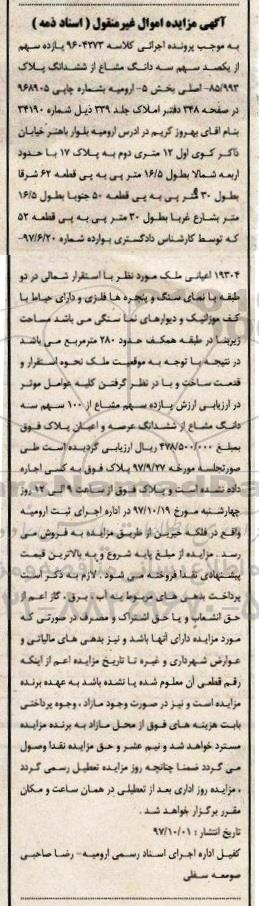 آگهی مزایده اموال غیرمنقول ( اسناد ذمه )
به موجب پرونده اجرائی کلاسه ۹۶۰۴۳۷۳ یازده سهم
از یکصد سهم سه دانگ مشاع از ششدانگ پلاک
۸۵/۹۹۳- اصلی بخش ۵- ارومیه بشماره چاپی ۹۶۸۹۰۵
در صفحه ۳۴۸ دفتر املاک جلد ۳۳۹ ذیل شماره ۳۴۱۹۰
بنام اقای بهروز کریم در ادرس ارومیه بلوار باهنر خیابان
ذاکر کوی اول ۱۲ متری دوم به پلاک ۱۷ با حدود
اربعه شمالا بطول ۱۶/۵ متر پی به پی قطعه ۶۲ شرقا
بطول ۳۰ متر پی به پی قطعه ۵۰ جنوبا بطول ۱۶/۵
متر بشارع غربا بطول ۳۰ متر پی به پی قطعه ۵۲
که توسط کارشناس دادگستری بوارده شماره ۹۷/۶/۲۰-
۱۹۳۰۴ اعیانی ملک مورد نظر با استقرار شمالی در دو
طبقه با نمای سنگ و پنجره ها فلزی و دارای حیاط با
کف موزائیک و دیوارهای نما سنگی می باشد مساحت
زیربنا در طبقه همکف حدود ۲۸۰ مترمربع می باشد
در نتیجه با توجه به موقعیت ملک نحوه استقرار و
قدمت ساخت و با در نظر گرفتن کلیه عوامل موثر
در ارزیابی ارزش یازده سهم مشاع از ۱۰۰ سهم سه
دانگ مشاع از ششدانگ عرصه و اعیان پلاک فوق
بمبلغ ۴۷۸/۵۰۰/۰۰۰ ریال ارزیابی گردیده است طی
صورتجلسه مورخه ۹۷/۹/۲۷ پلاک فوق به کسی اجاره
داده نشده است و پلاک فوق از ساعت ۹ الی ۱۲ روز
چهارشنبه مورخ ۹۷/۱۰/۱۹ در اداره اجرای ثبت ارومیه
واقع در فلکه خیرین از طریق مزایده به فروش می
رسد . مزایده از مبلغ پایه شروع و به بالاترین قیمت
پیشنهادی نقدا فروخته می شود . لازم به ذکر است
پرداخت بدهی های مربوط به آب ، برق ، گاز اعم از
حق انشعاب و یا حق اشتراک و مصرف در صورتی که
مورد مزایده دارای آنها باشد و نیز بدهی های مالیاتی و
عوارض شهرداری و غیره تا تاریخ مزایده اعم از اینکه
رقم قطعی آن معلوم شده یا نشده باشد به عهده برنده
مزایده است و نیز در صورت وجود مازاد ، وجوه پرداختی
بابت هزینه های فوق از محل مازاد به برنده مزایده
مسترد خواهد شد و نیم عشر و حق مزایده نقدا وصول
می گردد ضمنا چنانچه روز مزایده تعطیل رسمی گردد
، مزایده روز اداری بعد از تعطیلی در همان ساعت و مکان
مقرر برگزار خواهد شد .
تاریخ انتشار : ۹۷/۱۰/۰۱
کفیل اداره اجرای اسناد رسمی ارومیه- رضا صاحبی
صومعه سفلی